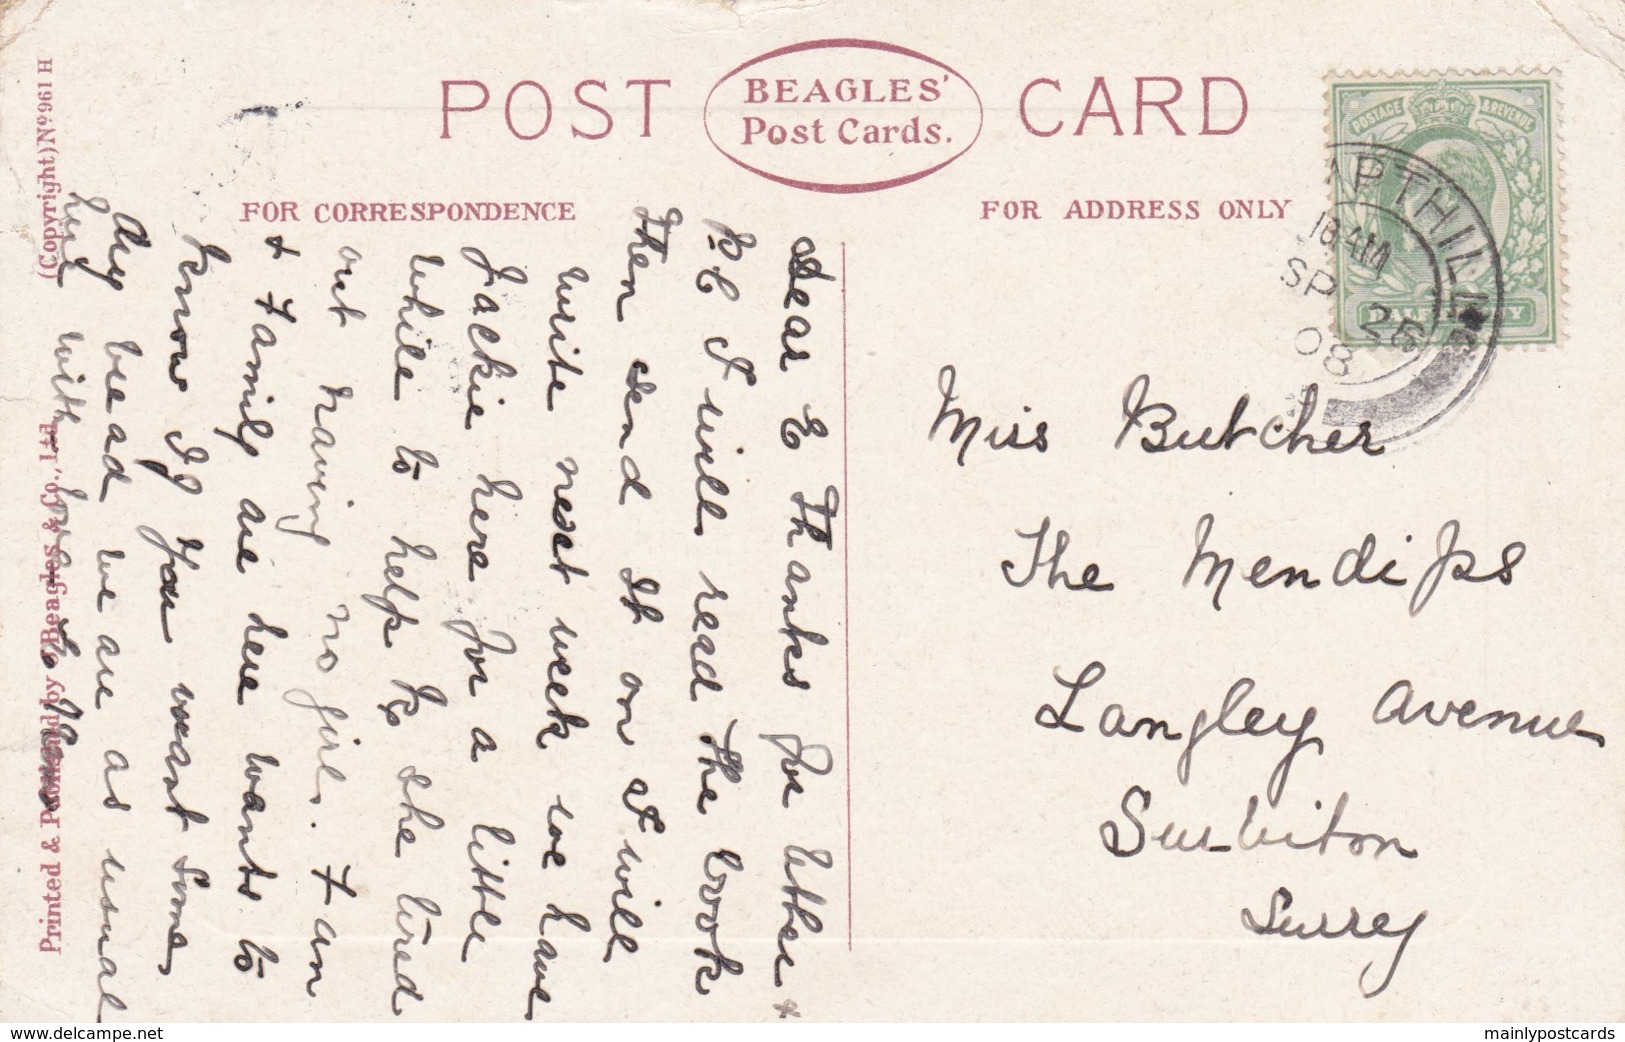 POST CARD
BEAGLES'
Post Cards.
FOR CORRESPONDENCE
FOR ADDRESS ONLY
(Copyright) No 961 H
Printed & Published by J. Beagles & Co., Ltd.
POSTAGE & REVENUE
HALFPENNY
AMPTHILL
10 AM
SP 25
08
Dear E Thanks for letter +
P.C I will read the book
Then send it on I will
write next week we have
Jackie here for a little
while to help us she tired
out having no girl. Fan
+ Family are here wants to
know if you want some
dry bread we are as usual
with love
Miss Butcher
The Mendips
Langley Avenue
Surbiton
Surrey
www.delcampe.net
mainlypostcards